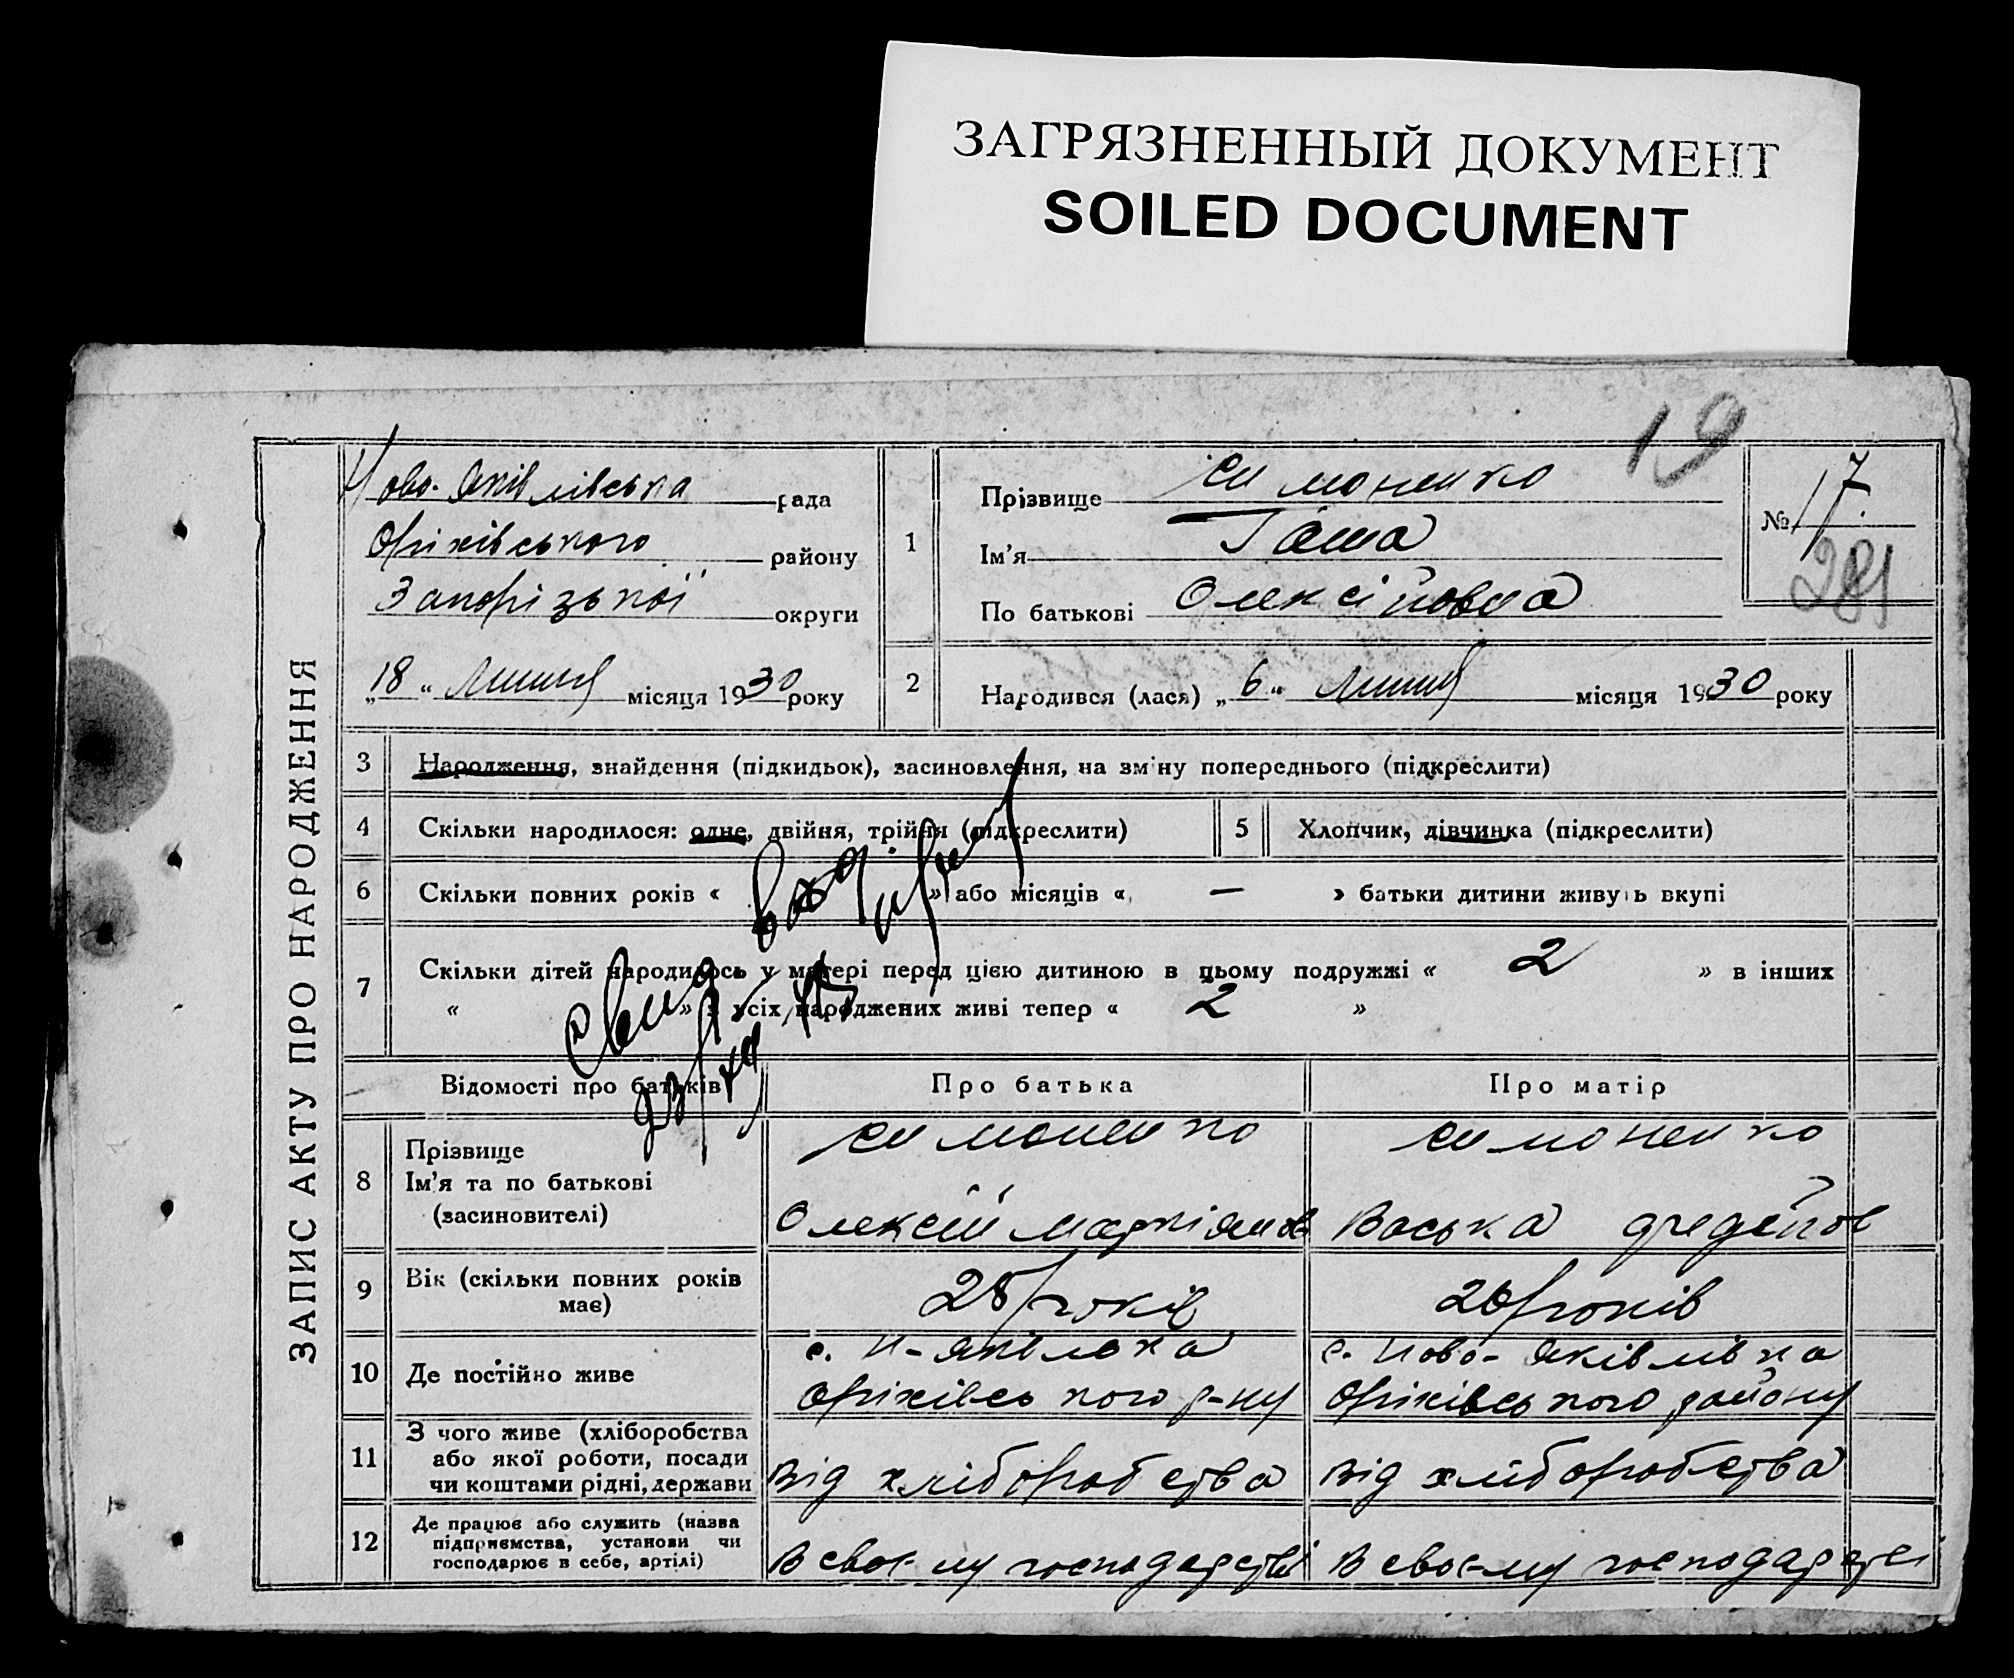 ЗАГРЯЗНЕННЫЙ ДОКУМЕНТ
SOILED DOCUMENT
19
ЗАПИС АКТУ ПРО НАРОДЖЕННЯ
Ново-Яківлівська рада
Оріхівського району
Запорізької округи
„18" Липня місяця 1930 року
1
Прізвище Симоненко
Ім'я
По батькові Олексіївна
№ 17
281
2
Народився (лася) „6" Липня місяця 1930 року
3 Народження, знайдення (підкидьок), засиновлення, на зміну попереднього (підкреслити)
4 Скільки народилося: одне, двійня, трійня (підкреслити)
5 Хлопчик, дівчинка (підкреслити)
6 Скільки повних років « » або місяців « — » батьки дитини живуть вкупі
7 Скільки дітей народилось у матері перед цією дитиною в цьому подружжі « 2 » в інших
« » з усіх народжених живі тепер « 2 »
Відомості про батьків
Про батька
Про матір
8 Прізвище
Ім'я та по батькові
(засиновителі)
Симоненко
Олексій Маркіянов
Симоненко
Васька
9 Вік (скільки повних років має)
28 років
26 років
10 Де постійно живе
с. Н-Яківлвка
Оріхівського р-ну
с. Ново-Яківлівка
Оріхівського району
11 З чого живе (хліборобства
або якої роботи, посади
чи коштами рідні, держави
Від хліборобства
Від хліборобства
12 Де працює або служить (назва
підприємства, установи чи
господарює в себе, артілі)
В своєму господарстві
В своєму господарстві